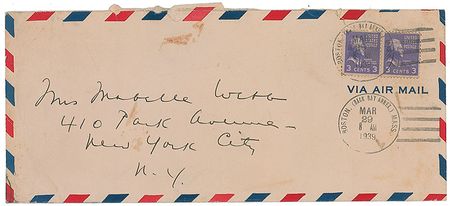 BOSTON
UNITED STATES POSTAGE
3 CENTS 3
3 CENTS 3
VIA AIR MAIL
BOSTON, (BACK BAY ANNEX) MASS.
MAR
29
8 AM
1939
Mrs Mabelle Webb
410 Park Avenue
New York City
N.Y.